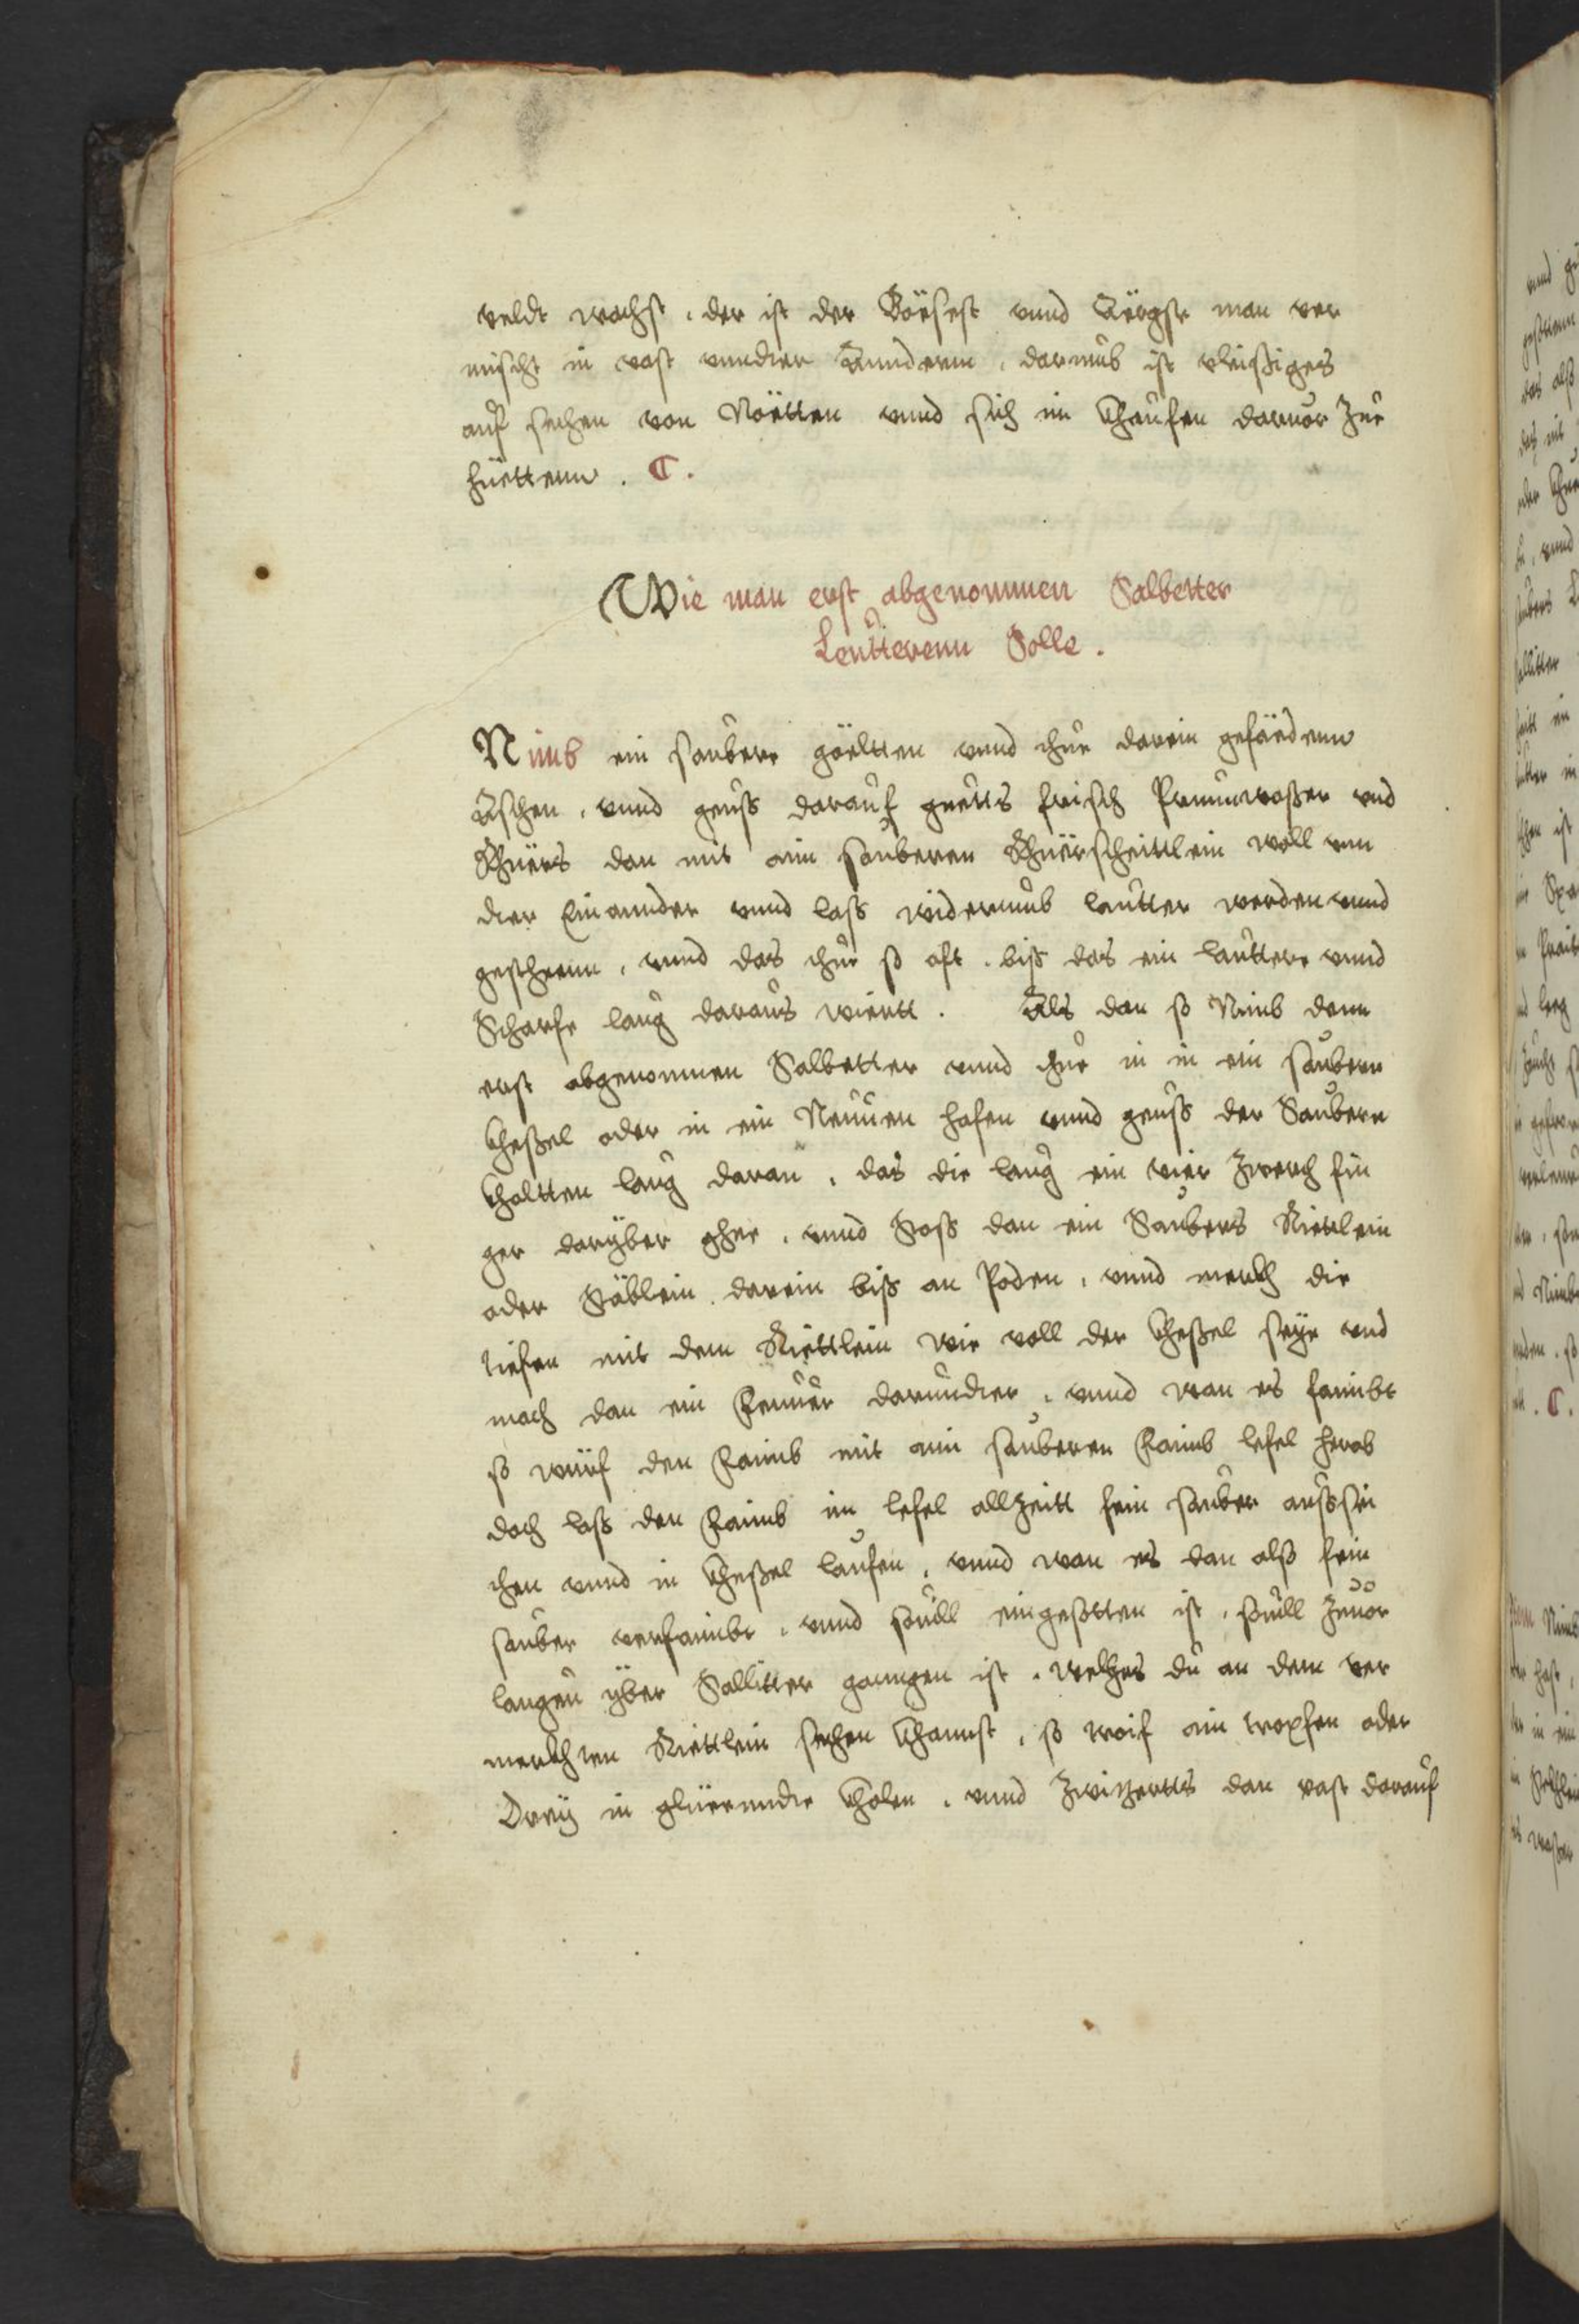 veldt wachst, der ist der Böësest vnnd Äërgste man ver
mischt in vast vnnder Annderm, darumb ist vleissiges
auf sechen von Nöëtten vnnd sich im khaufen daruor zue
hüettenn. C.
Wie man erst abgenommen Salbetter
Leütterenn Solle.
Nimb ein saubere göëltten vnnd thue darein gefäëdenn
Äschen, vnnd geuss darauf guetts frisch Prunnwasser vnd
Rhüërs dan mit aim sauberen Rhüërscheittlein woll vnn
der Einannder vnnd lass widerumb lautter werden vnnd
gesteenn, vnnd das thue so oft, biss das ein lauttere vnnd
Scharfe laug daraus wiertt. Als dan so Nimb denn
erst abgenomen Salbetter vnnd thue in in ein saubern
khessel oder in ein Neuuen hafen vnnd geuss der Saubern
khaltten laug daran, das die laug ein vier zwerch fin
ger daryber ghee, vnnd Stoss dan ein Saubers Riettlein
oder Stäblein darein biss an Poden, vnnd merckh die
tiefen mit dem Riettlein wie voll der khessel seye vnd
mach dan ein Feuuer darundter, vnnd wan es faimbt
so würf den Faimb mit aim sauberen Faimb lefel herab
doch lass den Faimb im lefel allzeitt fein sauber aussei
chen vnnd in khessel laufen, vnnd wan es dan alss fein
sauber verfaimbt, vnnd souill eingesotten ist, souill zuuor
laugen yber Sallitter ganngen ist, welches du an dem ver
merckhten Riettlein sechen khannst, so wirf ain tropfen oder
Drey in glüeenndte kholen, vnnd zwitzertts dan vast darauf
vnnd
das alss
Sallitter
C.